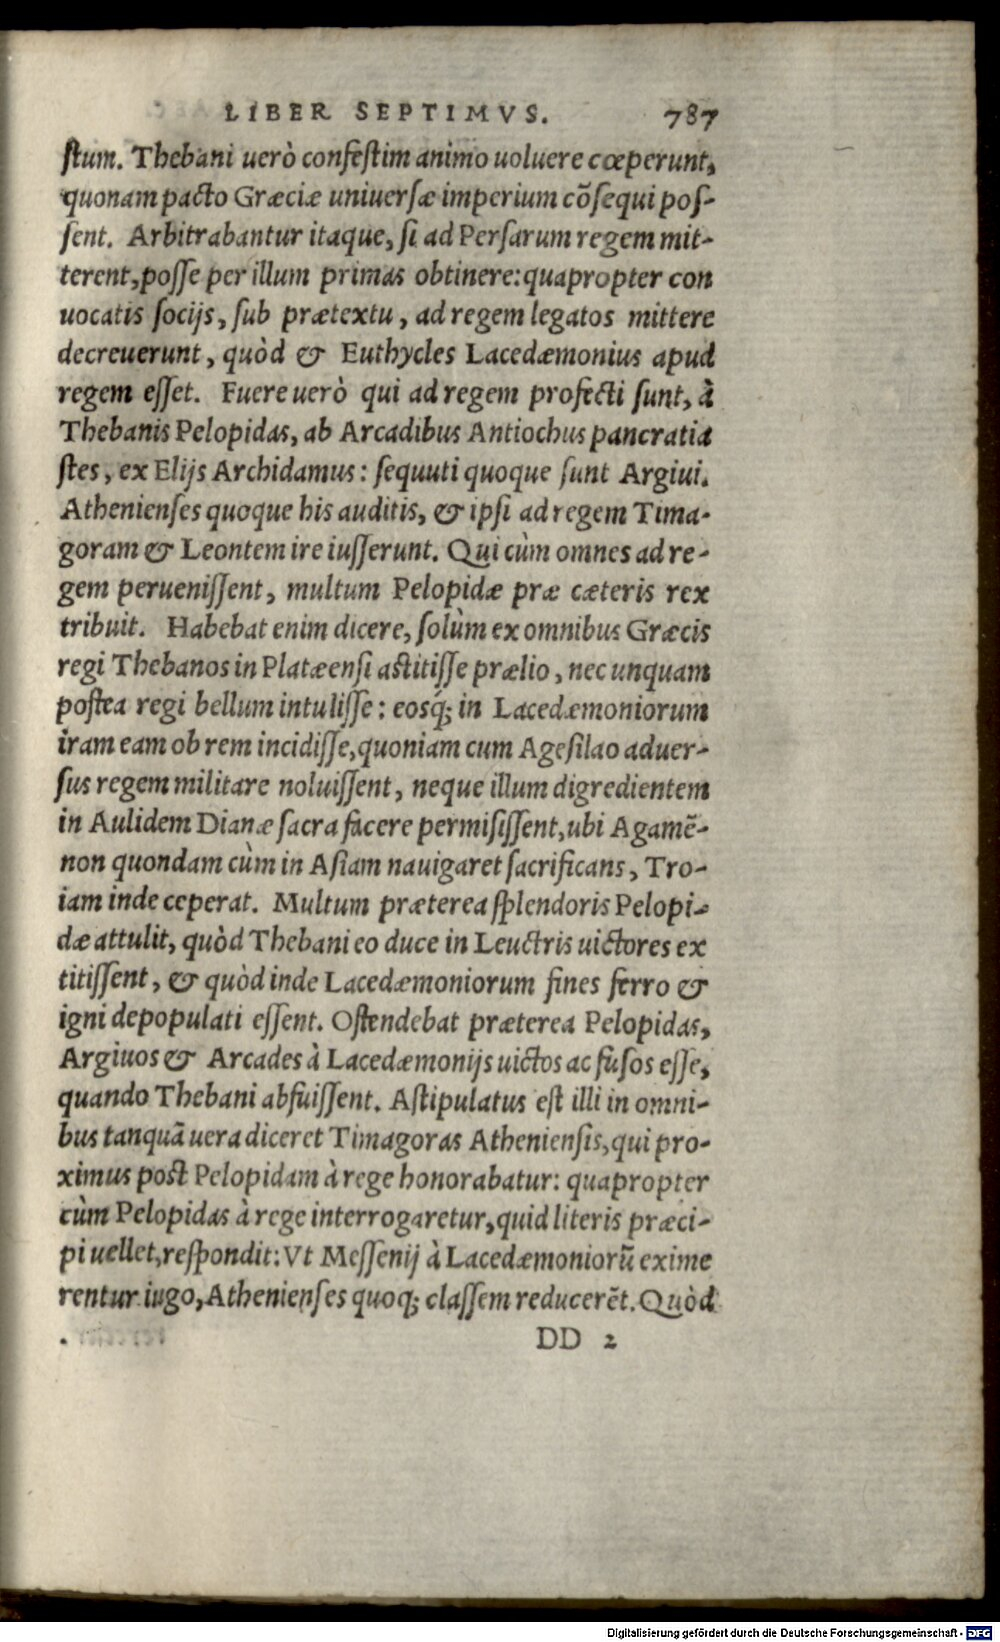 LIBER SEPTIMVS. 787
stum. Thebani uerò confestim animo uoluere cœperunt,
quonam pacto Græciæ uniuersæ imperium cõsequi pos-
sent. Arbitrabantur itaque, si ad Persarum regem mit-
terent, posse per illum primas obtinere: quapropter con
uocatis socijs, sub prætextu, ad regem legatos mittere
decreuerunt, quòd & Euthycles Lacedæmonius apud
regem esset. Fuere uerò qui ad regem profecti sunt, à
Thebanis Pelopidas, ab Arcadibus Antiochus pancratia
stes, ex Elijs Archidamus: sequuti quoque sunt Argiui.
Athenienses quoque his auditis, & ipsi ad regem Tima-
goram & Leontem ire iusserunt. Qui cùm omnes ad re-
gem peruenissent, multum Pelopidæ præ cæteris rex
tribuit. Habebat enim dicere, solùm ex omnibus Græcis
regi Thebanos in Platæensi astitisse prælio, nec unquam
postea regi bellum intulisse: eosq́; in Lacedæmoniorum
iram eam ob rem incidisse, quoniam cum Agesilao aduer-
sus regem militare noluissent, neque illum digredientem
in Aulidem Dianæ sacra facere permisissent, ubi Agamẽ-
non quondam cùm in Asiam nauigaret sacrificans, Tro-
iam inde ceperat. Multum præterea splendoris Pelopi-
dæ attulit, quòd Thebani eo duce in Leuctris uictores ex
titissent, & quòd inde Lacedæmoniorum fines ferro &
igni depopulati essent. Ostendebat præterea Pelopidas,
Argiuos & Arcades à Lacedæmonijs uictos ac fusos esse,
quando Thebani abfuissent. Astipulatus est illi in omni-
bus tanquã uera diceret Timagoras Atheniensis, qui pro-
ximus post Pelopidam à rege honorabatur: quapropter
cùm Pelopidas à rege interrogaretur, quid literis præci-
pi uellet, respondit: Vt Messenij à Lacedæmoniorũ exime
rentur iugo, Athenienses quoq; classem reducerẽt. Quòd
DD 2
Digitalisierung gefördert durch die Deutsche Forschungsgemeinschaft - DFG